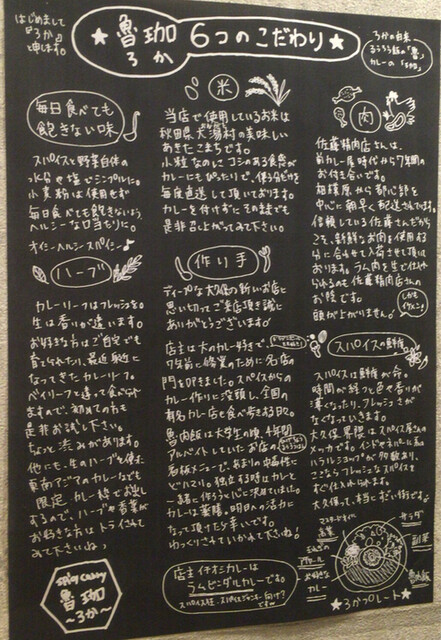 はじめまして
『ろか』と
申します。
★魯珈 6つのこだわり★
ろか
ろかの由来
るうろう飯の「魯」
カレーの「珈」
毎日食べても
飽きない味
スパイスと野菜自体の
水分や塩でシンプルに。
小麦粉は使用せず
毎日食べても飽きないよう、
ヘルシーな口当たりに。
オイシーヘルシースパイシー♪
ハーブ
カレーリーフはフレッシュを。
生は香りが違います。
お好きな方はご自宅でも
育てられたり、最近身近に
なってきたカレーリーフ。
ベイリーフと違って食べられ
ますので、初めての方も
是非お試し下さい。
ちょっと渋みがあります。
他にも、生のハーブを使った
東南アジアのカレーなども
限定カレー枠でお出し
するので、ハーブの香菜が
お好きな方はトライされて
みて下さいね♪
spicy curry
魯珈
～ろか～
米
当店で使用しているお米は
秋田県大潟村の美味しい
あきたこまちです。
小粒なのにコシのある食感が
カレーにもぴったりで、使う分だけを
毎度直送して頂いております。
カレーを付けずにそのままでも
是非召し上がってみて下さい。
作り手
ディープな大久保の新しいお店と
思い切ってご来店頂き誠に
ありがとうございます!
店主は大のカレー好きで、
7年前に修業のために名店の
門を叩きました。スパイスからの
カレー作りに没頭し、全国の
有名カレー店を食べ歩きするDe。
魯肉飯は大学生の頃、4年間
アルバイトしていたお店の
看板メニューで、あまりの中毒性に
どハマり。独立する時はカレーと
一緒に作ろうと心に決めていました。
カレーは薬膳。明日への活力に
なって頂けたら幸いです。
ゆっくりされていかれて下さいね!
店主イチオシカレーは
ラムビンダルカレーです。
肉
佐藤精肉店さんは、
前カレー屋時代から7年間の
お付き合いです。
相模原から都心部を
中心に朝早く配送されてます。
信頼している佐藤さんだから
こそ、新鮮なお肉を使用する
分に合わせて入荷させて頂いて
おります。ラム肉を生で仕入れ
られるのも佐藤精肉店さんの
お陰です。
頭が上がりません!
しかも
イケメン!
スパイスの鮮度
スパイスは鮮度が命。
時間が経つと色や香りが
薄くなったり、フレッシュさが
なくなっていきます。
大久保界隈はスパイス屋さんの
メッカです。インドやネパール系の
ハラルショップが多数あり、
ここならフレッシュなスパイスを
すぐ仕入れられます。
大久保って、本当にすごい街です♪
サラダ
副菜
魯肉飯
アチャール
お好きな
カレー
★ろかプレート★